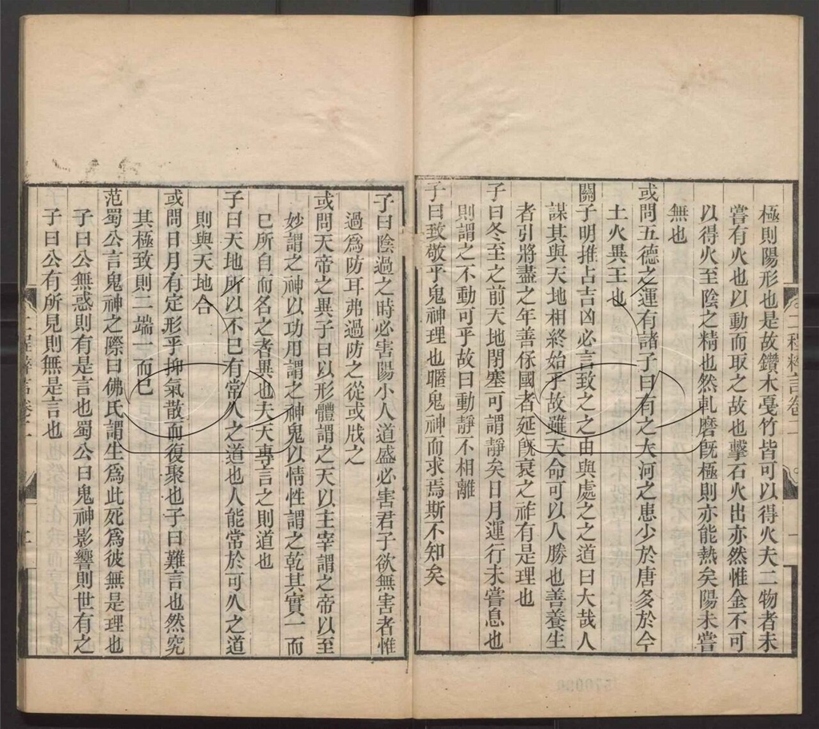 極則陽形也是故鑽木戛竹皆可以得火夫二物者未
嘗有火也以動而取之故也擊石火出亦然惟金不可
以得火至陰之精也然軋磨旣極則亦能熱矣陽未嘗
無也
或問五德之運有諸子曰有之大河之患少於唐多於今
土火異王也
關子明推占吉凶必言致之之由與處之之道曰大哉人
謀其與天地相終始乎故雖天命可以人勝也善養生
者引將盡之年善保國者延旣衰之祚有是理也
子曰冬至之前天地閉塞可謂靜矣日月運行未嘗息也
則謂之不動可乎故曰動靜不相離
子曰致敬乎鬼神理也暱鬼神而求焉斯不知矣
二程粹言卷二
子曰陰過之時必害陽小人道盛必害君子欲無害者惟
過爲防耳弗過防之從或戕之
或問天帝之異子曰以形體謂之天以主宰謂之帝以至
妙謂之神以功用謂之神鬼以情性謂之乾其實一而
已所自而名之者異也夫天專言之則道也
子曰天地所以不已有常久之道也人能常於可久之道
則與天地合
或問日月有定形乎抑氣散而復聚也子曰難言也然究
其極致則二端一而已
范蜀公言鬼神之際曰佛氏謂生爲此死爲彼無是理也
子曰公無惑則有是言也蜀公曰鬼神影響則世有之
子曰公有所見則無是言也
二程粹言卷二